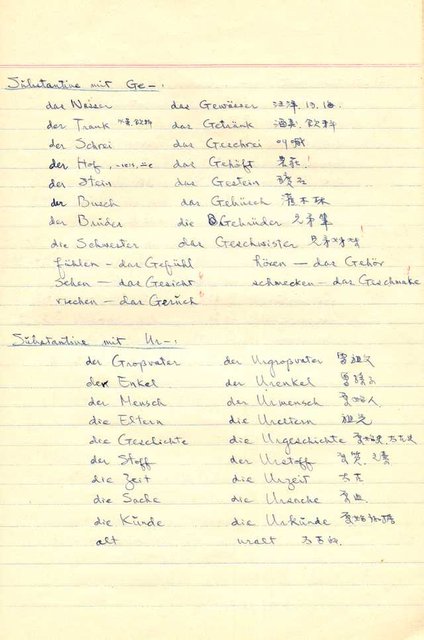 Substantive mit Ge-:
das Wasser das Gewässer
der Trank 飲料 das Getränk 飲料
der Schrei das Geschrei 叫喊
der Hof das Gehöft
der Stein das Gestein
der Busch das Gebüsch 灌木林
der Bruder die Gebrüder 兄弟輩
die Schwester das Geschwister 兄弟姊妹
fühlen - das Gefühl hören — das Gehör
sehen — das Gesicht schmecken - das Geschmack
riechen - das Geruch
Substantive mit Ur-:
der Großvater der Urgroßvater 曾祖父
der Enkel der Urenkel 曾孫
der Mensch der Urmensch 原始人
die Eltern die Ureltern 祖先
die Geschichte die Urgeschichte
der Stoff der Urstoff
die Zeit die Urzeit 太古
die Sache die Ursache
die Kunde die Urkunde
alt uralt 太古的